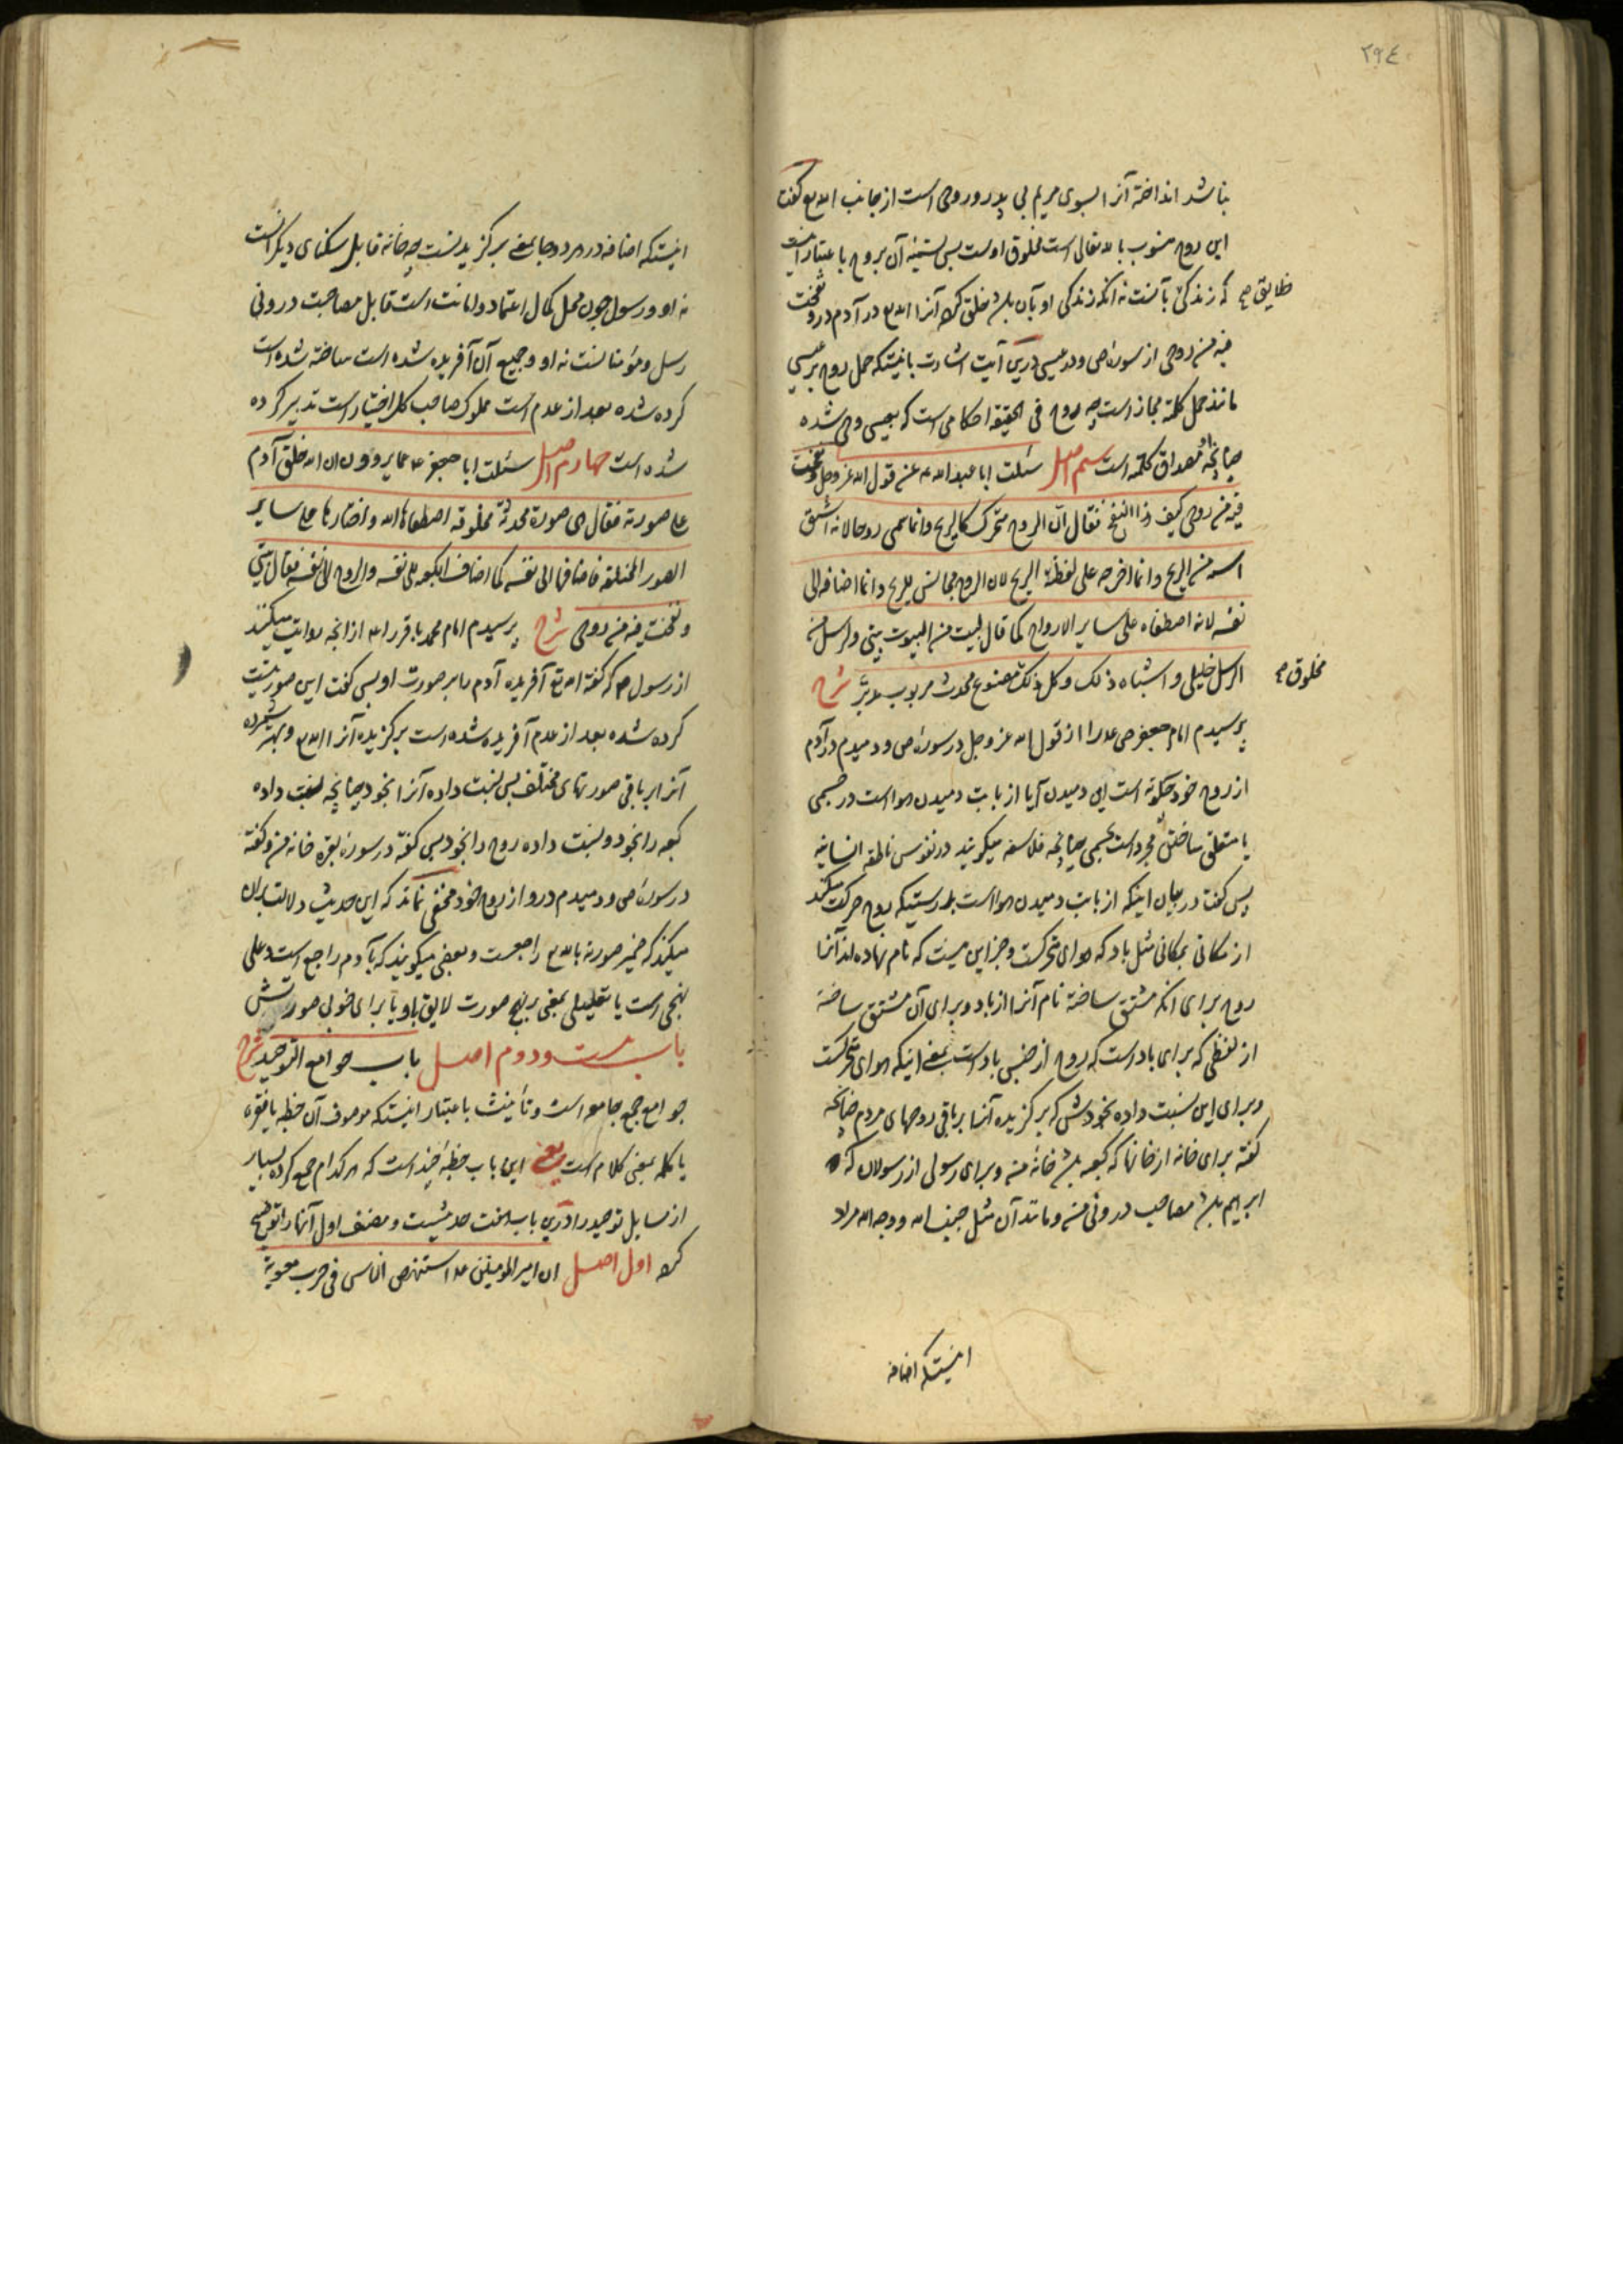 ٢٩٤
نباشد انداخته آنرا بسوی مریم بی پدر و روحی است از جانب الله تع گفت
این روح منسوب بالله تعالی است مخلوق اوست پس تسمیه آن بروح باعتبار اینست
که زندگی بآنست نه آنکه زندگی او بآن باشد خلق کرده آنرا الله تع در آدم در ونفخت
خلایق صح
فیه من روحی از سورهٔ ص و در عیسی درین آیت اشارت باینستکه حمل روح بر عیسی
مانند حمل کلمه مجاز است چه روح فی الحقیقه احکامی است که بعیسی وحی شده
چنانچه او مصداق کلمه است سیم اصل سئلت ابا عبد الله ع عن قول الله عز وجل ونفخت
فیه من روحی کیف هذا النفخ فقال ان الروح متحرک کالریح وانما سمی روحا لانه اشتق
اسمه من الریح وانما اخرجه علی لفظة الریح لان الروح مجانس للریح وانما اضافه الی
نفسه لانه اصطفاه علی سایر الارواح کما قال لبیت من البیوت بیتی ولرسول من
الرسل خلیلی و اشباه ذلک وکل ذلک مصنوع محدث مربوب مدبر شرح
مخلوق صح
پرسیدم امام جعفر ص ع را از قول الله عز وجل در سورهٔ ص و دمیدم در آدم
از روح خود چگونه است این دمیدن آیا از بابت دمیدن هوا است در جسمی
یا متعلق ساختن مجرد است بجسمی چنانچه فلاسفه میگویند در نفوس ناطقه انسانیه
پس گفت در بیان اینکه از بابت دمیدن هوا است بدرستیکه روح حرکت میکند
از مکانی بمکانی مثل باد که هوای متحرکست و جز این نیست که نام نهاده اند آنرا
روح برای آنکه مشتق ساخته نام آنرا از باد و برای آن مشتق ساخته
از لفظی که برای باد است که روح از جنس باد است بمعنی اینکه هوای متحرکست
و برای این نسبت داده بخودش که برگزیده آنرا بر باقی روحهای مردم چنانچه
گفته برای خانه از خانها که کعبه باشد خانهٔ من و برای رسولی از رسولان که
ابراهیم باشد مصاحب درونی من و مانند آن مثل جنب الله و وجه الله مراد
اینستکه اضافه
اینستکه اضافه در هر دو جا بمعنی برگزیدنست چه خانه قابل سکنای دیگرانست
نه او و رسول چون محل کمال اعتماد و امانت است قابل مصاحبت درونی
رسل و مؤمنانست نه او و جمیع آن آفریده شده است ساخته شده است
کرده شده بعد از عدم است مملوک صاحب کل اختیار است تدبیر کرده
شده است چهارم اصل سئلت ابا جعفر ع عما یروون ان الله خلق آدم
علی صورته فقال هی صورة محدثة مخلوقة اصطفاها الله واختارها علی سایر
الصور المختلفة فاضافها الی نفسه کما اضاف الکعبه الی نفسه والروح الی نفسه فقال بیتی
ونفخت فیه من روحی شرح پرسیدم امام محمد باقر را ع از آنچه روایت میکنند
از رسول ص که گفته الله تع آفریده آدم را بر صورت او پس گفت این صورتیست
کرده شده بعد از عدم آفریده شده است برگزیده آنرا الله تع و بهتر شمرده
آنرا بر باقی صورتهای مختلف پس نسبت داده آنرا بخود چنانچه نسبت داده
کعبه را بخود و نسبت داده روح را بخود پس گفته در سورهٔ بقره خانه من و گفته
در سورهٔ ص و دمیدم در او از روح خود مخفی نماند که این حدیث دلالت بر آن
میکند که ضمیر صورته بالله تع راجعست و بعضی میگویند که بآدم راجع است و علی
نهجی است یا تعلیلی بمعنی بر نهج صورت لایق باو یا برای خوبی صورتش
باب بیست و دوم اصل باب جوامع التوحید شرح
جوامع جمع جامعه است و تأنیث باعتبار اینستکه موصوف آن خطبه یا فقره
یا کلمه بمعنی کلام است یعنی این باب خطبهٔ چند است که هر کدام جمع کرده بسیار
از مسایل توحید را درین باب هفت حدیثست و مصنف اول آنها را توضیح
کرده اول اصل ان امیر المومنین ع استنهض الناس فی حرب معویة